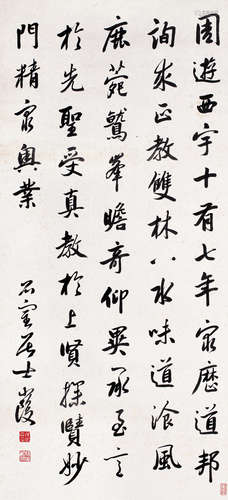 周遊西宇十有七年窮歷道邦
詢求正教雙林八水味道餐風
鹿菀鷲峯瞻奇仰異承至言
於先聖受真教於上賢探賾妙
門精窮奧業
石室居士